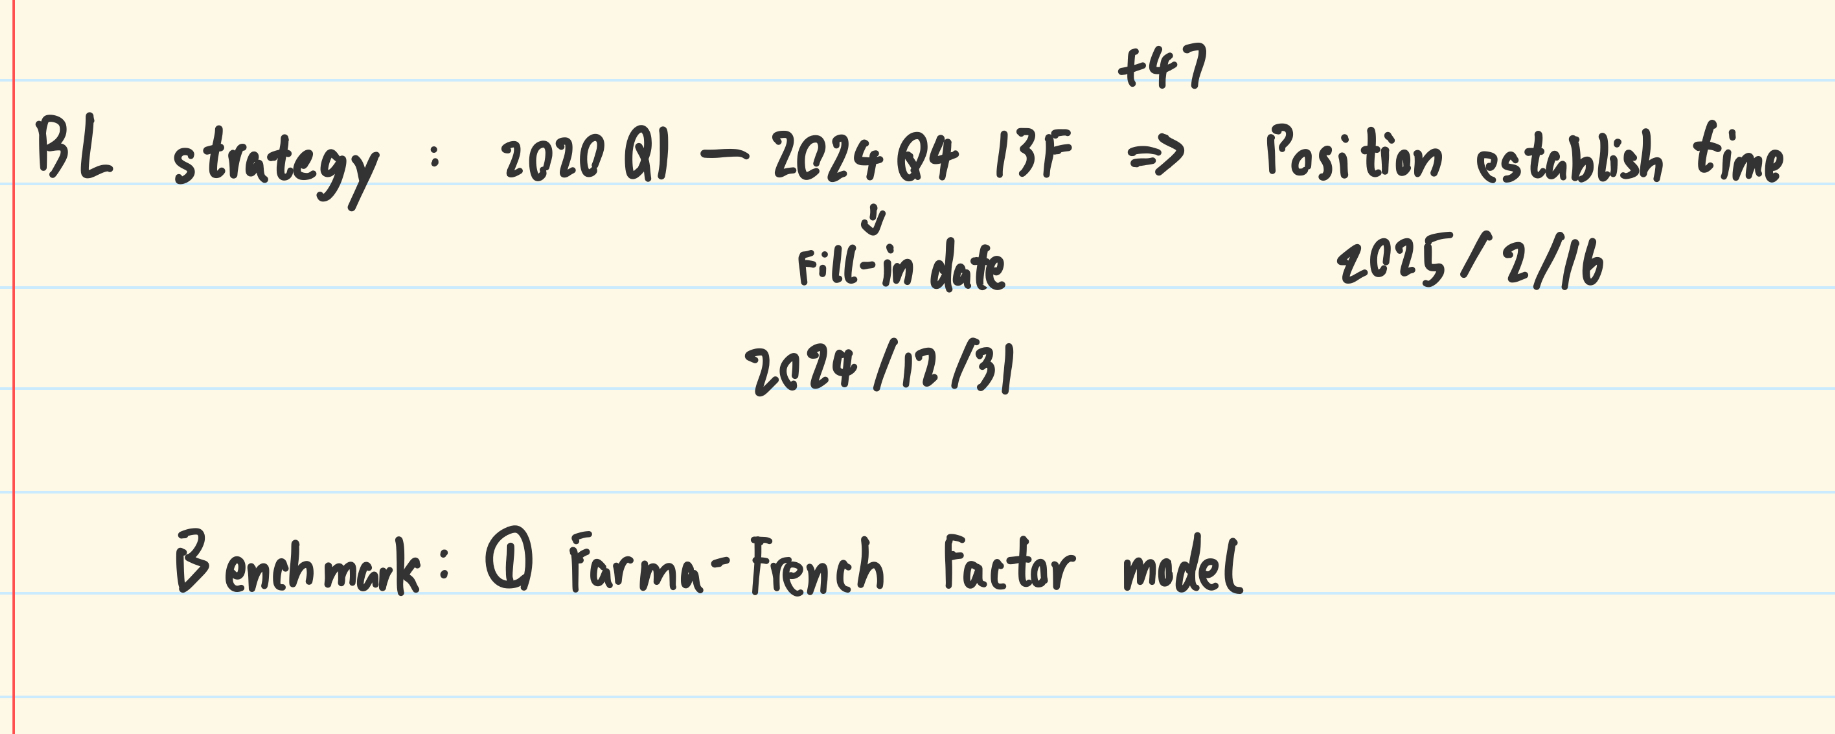 +47
BL strategy : 2020 Q1 — 2024 Q4 13F ⇒ Position establish time
↓
Fill-in date 2025/2/16
2024/12/31
Benchmark: ① Farma-French Factor model